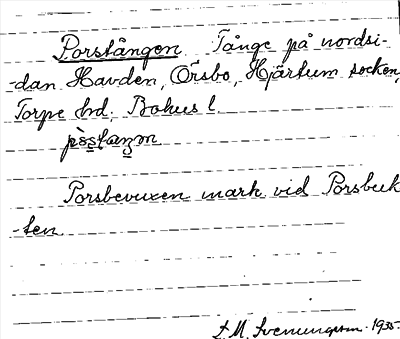 Porstången Tånge på nordsi-
-dan Havden, Örsbo, Hjärtum socken,
Torpe hd, Bohus l.
Porsbevuxen mark vid Porsbuk
-ten
S. M. Svenungsson. 1935.